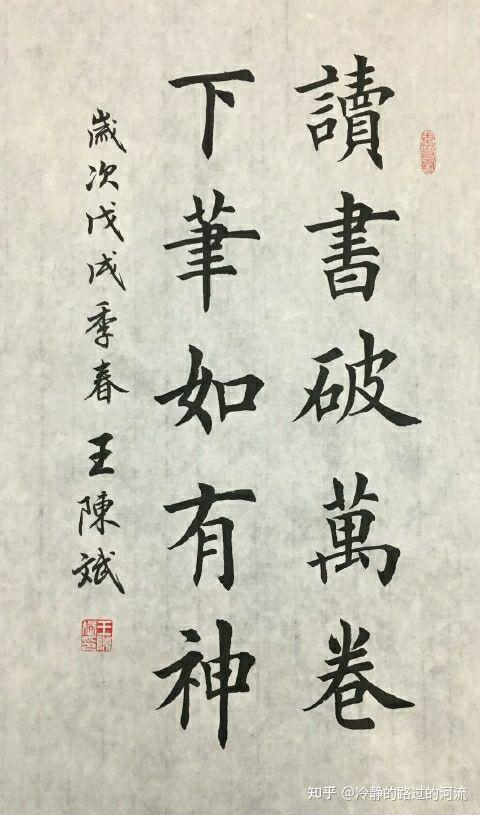 讀書破萬卷
下筆如有神
歲次戊戌季春王陳斌
知乎 @冷静的路过的河流